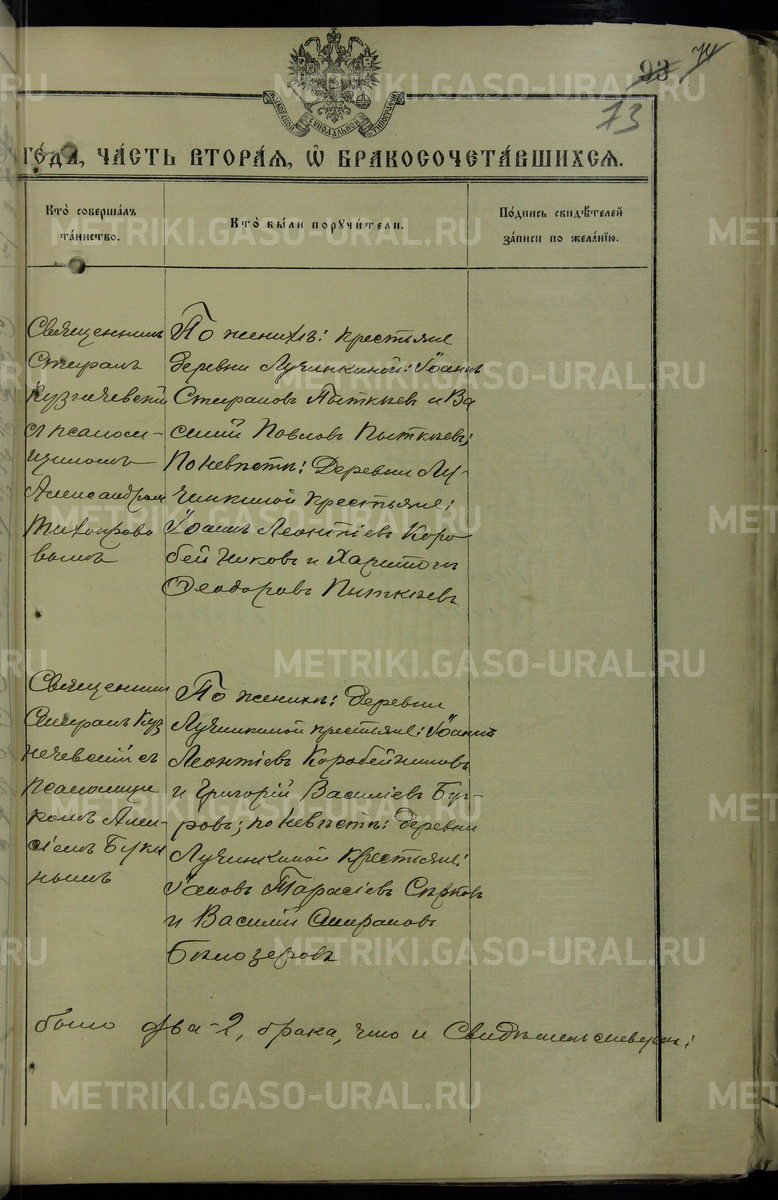 93 74
73
ГО́ДА, ЧА́СТЬ ВТОРА́Я, Ѽ БРАКОСОЧЕТА́ВШИХСЯ.
Кто̀ соверша́лъ
та́инство.
Кто̀ бы́ли поручи́тели.
По́дпись свидѣ́телей
за́писи по жела́нію.
Священникъ
Стефанъ
Кузнечевскій
съ псалом-
щикомъ
Александромъ
Тихоміро
вымъ
По женихѣ: крестьяне
деревни Лучинкиной: Іоаннъ
Стефановъ Пыткѣевъ и Ва
силій Павловъ Пыткѣевъ;
По невѣстѣ: деревни Лу-
чинкиной крестьяне:
Іоаннъ Леонтіевъ Коро
бейниковъ и Харитонъ
Ѳеодоровъ Пыткѣевъ
Священникъ
Стефанъ Куз
нечевскій съ
псаломщи
комъ Алек
сіемъ
По женихѣ: деревни
Лучинкиной крестьяне: Іоаннъ
Леонтіевъ Коробейниковъ
и Григорій Василіевъ Буг-
ровъ; по невѣстѣ: деревни
Лучинкиной крестьяне:
Іаковъ Тарасіевъ
и Василій Стефановъ
Бѣлозеровъ
было два-2, брака, что и свидѣтельствуемъ:
METRIKI.GASO-URAL.RU